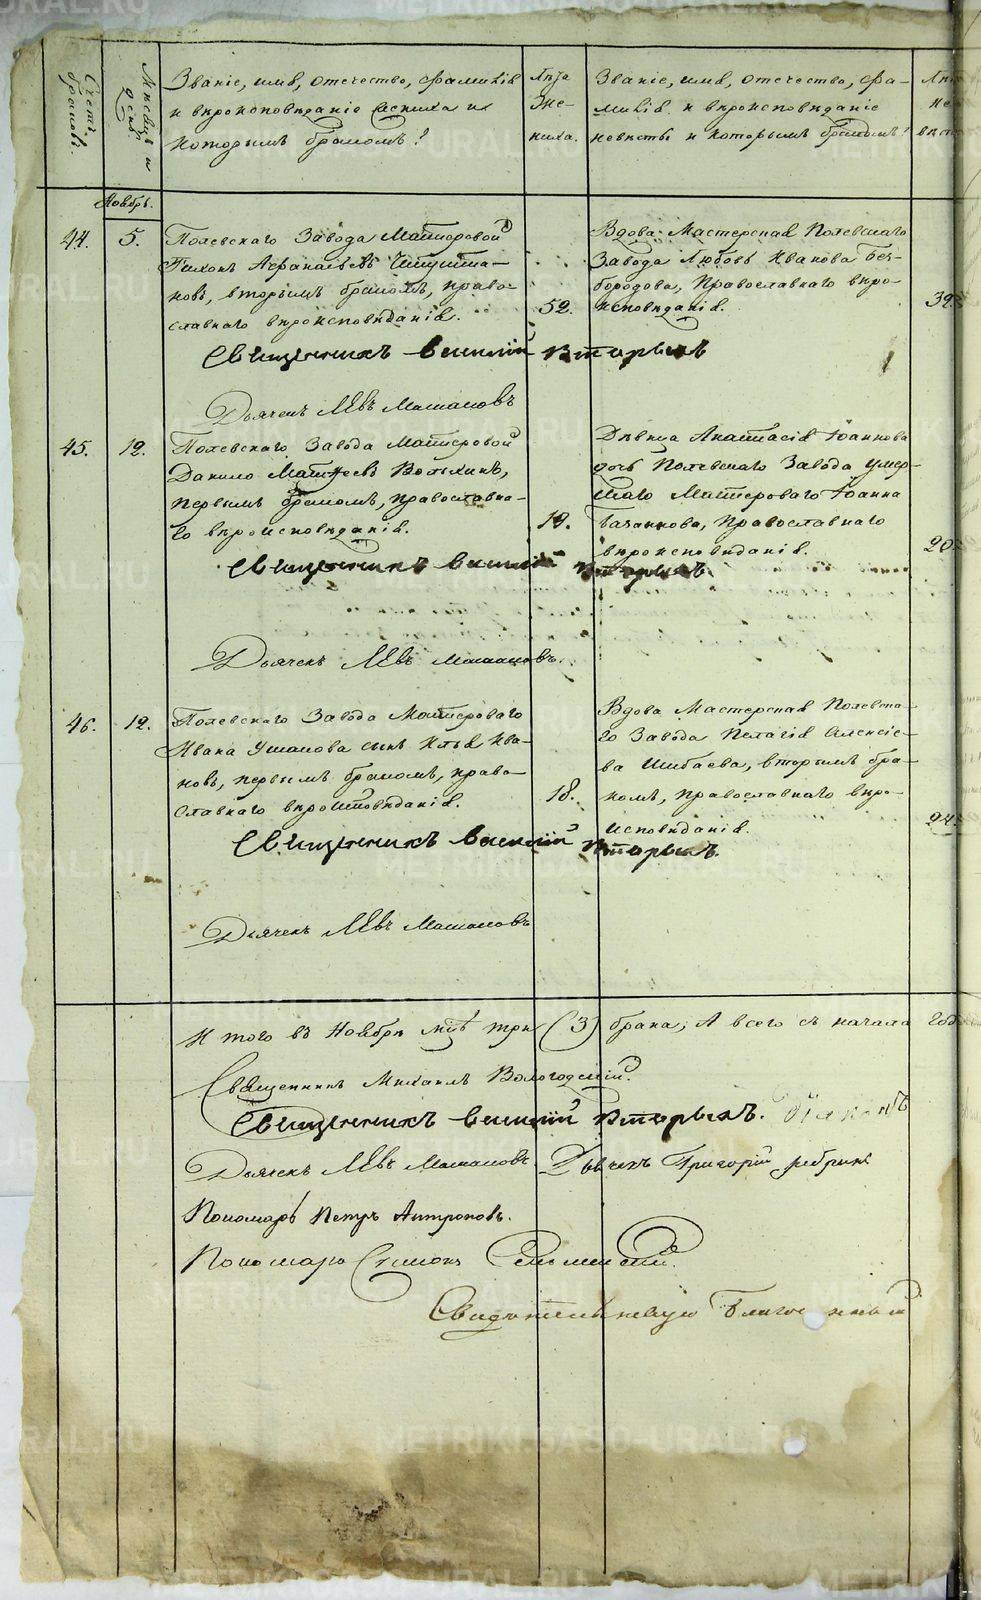 Счетъ браковъ.
Мѣсяцъ и день
Званіе, имя, отечество, фамилія
и вѣроисповѣданіе жениха и
которымъ бракомъ?
Лѣта
Же-
ниха.
Званіе, имя, отечество, фа-
милія и вѣроисповѣданіе
невѣсты и которымъ бракомъ?
Ноябрь.
44.
5.
Полевскаго Завода Мастеровой
Тихонъ Афанасьевъ
новъ, вторымъ бракомъ, право-
славнаго вѣроисповѣданія.
52.
Вдова Мастерская Полевскаго
Завода Любовь Иванова Без-
бородова, Православнаго вѣро-
исповѣданія.
39
Священникъ Василій Вторыхъ
Дьячекъ Левъ
45.
12.
Полевскаго Завода Мастеровой
Данило Матѳеевъ
первымъ бракомъ, православна-
го вѣроисповѣданія.
19.
Дѣвица Анастасія Іоаннова
дочь Полевскаго Завода умер-
шаго Мастероваго Іоанна
Православнаго
вѣроисповѣданія.
20
Священникъ Василій Вторыхъ.
Дьячекъ Левъ
46.
12.
Полевскаго Завода Мастероваго
Ивана Ушакова сынъ Илья Ива-
новъ, первымъ бракомъ, право-
славнаго вѣроисповѣданія.
18.
Вдова Мастерская Полевска-
го Завода Пелагія Алексѣе-
ва Шибаева, вторымъ бра-
комъ, православнаго вѣро-
исповѣданія.
24
Священникъ Василій Вторыхъ.
Дьячекъ Левъ
И того въ Ноябрѣ мцѣ три (3) брака; А всего съ начала года
Священникъ Михаилъ Вологодскій.
Священникъ Василій Вторыхъ.
Дьячекъ Левъ
Дьячекъ Григорій
Пономарь Петръ Антроповъ.
Пономарь Симонъ
Свидѣтельствую
METRIKI.GASO-URAL.RU